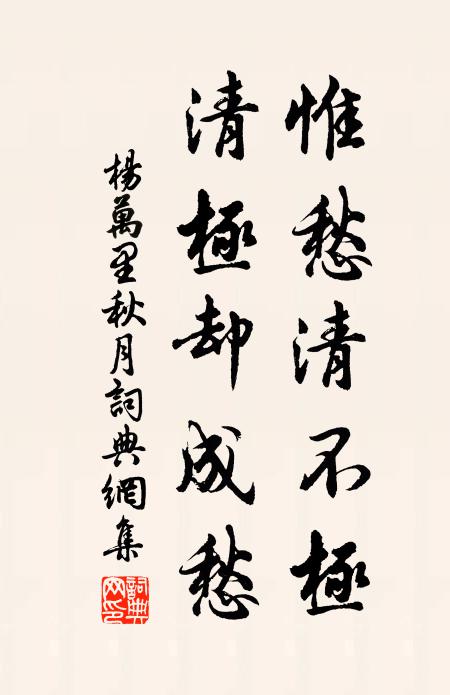 惟愁清不極
清極却成愁
楊萬里秋月詞典網集
詞典
网印